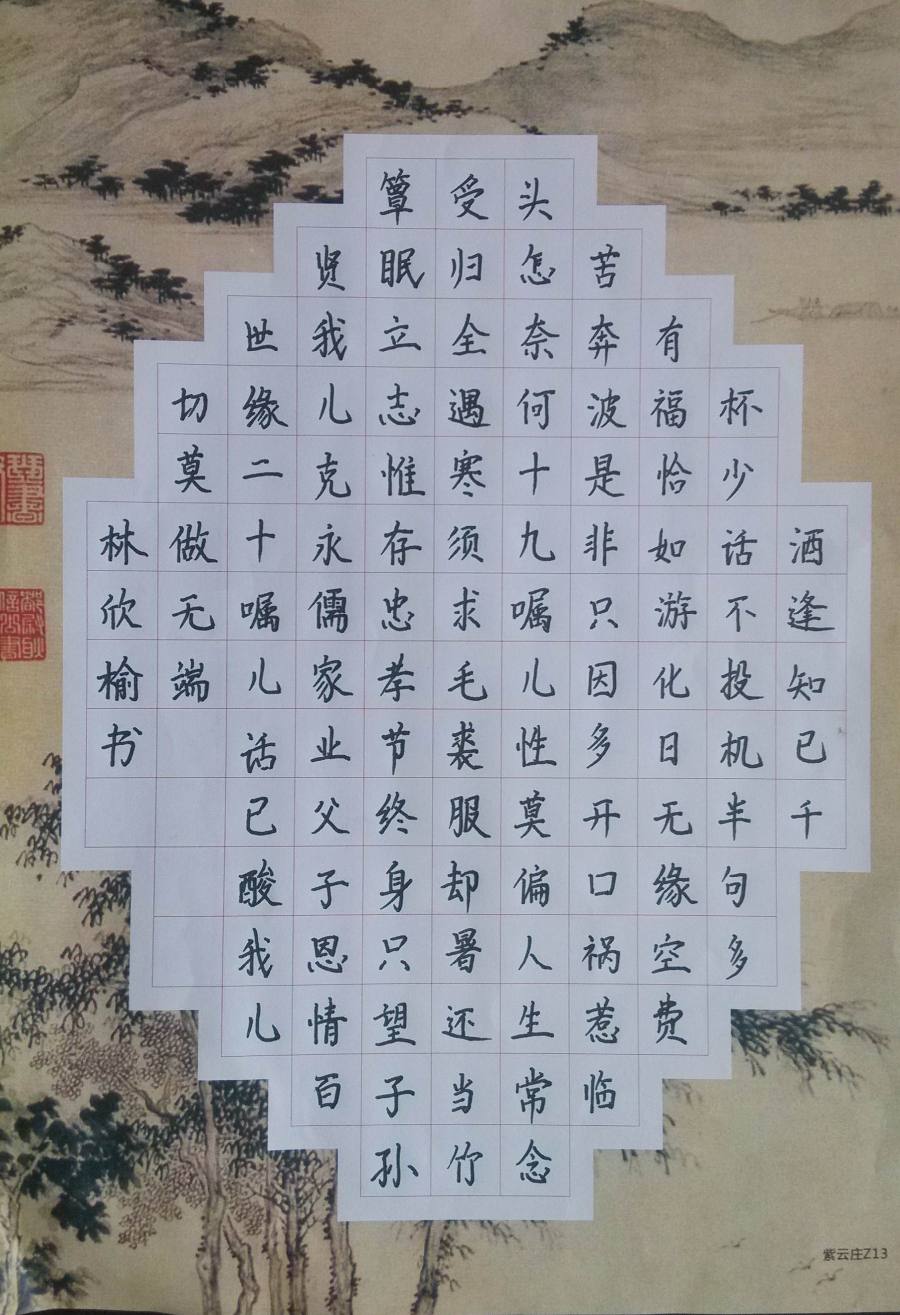 酒逢知已千
杯少话不投机半句多
有福恰如游化日无缘空费
苦奔波是非只因多开口祸惹临
头怎奈何十九嘱儿性莫偏人生常念
受归全遇寒须求毛裘服却暑还当竹
簟眠立志惟存忠孝节终身只望子孙
贤我儿克永儒家业父子恩情百
世缘二十嘱儿话已酸我儿
切莫做无端
林欣榆书
紫云庄Z13